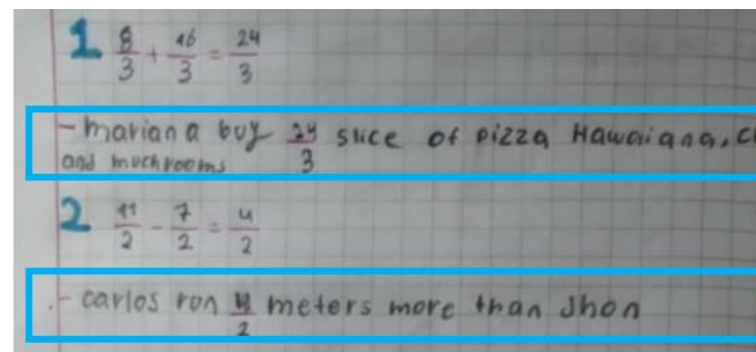 1 8/3 + 16/3 = 24/3
- mariana buy 24/3 slice of pizza Hawaiana,
and muchrooms
2 11/2 - 7/2 = 4/2
- carlos ron 4/2 meters more than Jhon